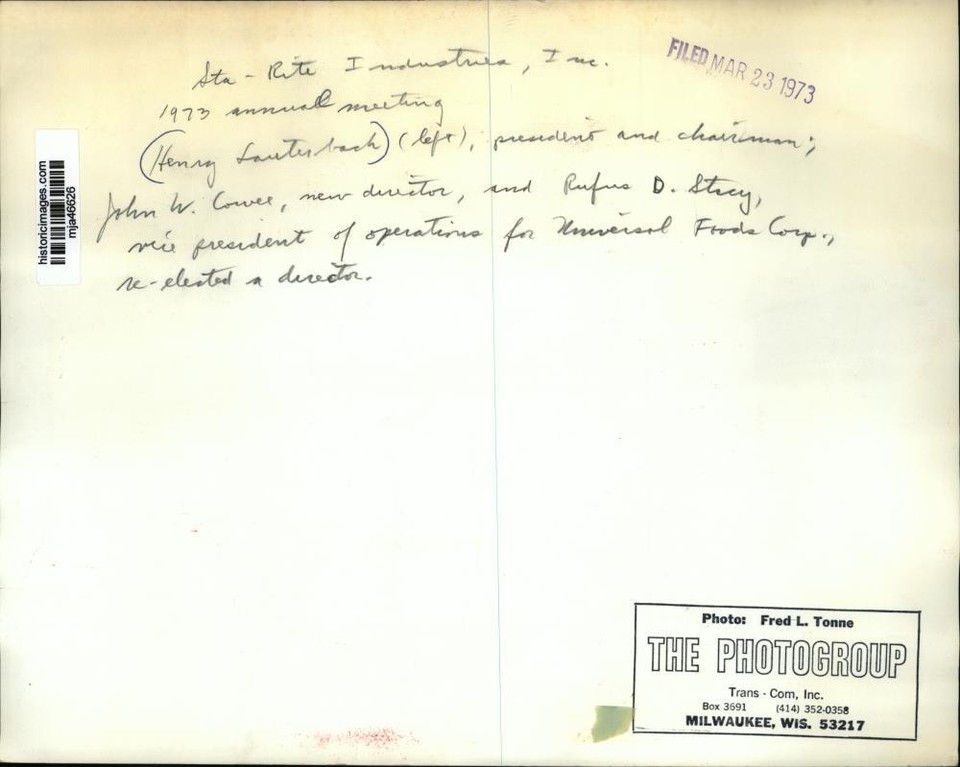 Sta-Rite Industries, Inc.
FILED MAR 23 1973
1973 annual meeting
(Henry Lauterbach) (left), president and chairman;
John W. Cowee, new director, and Rufus D. Stacy,
vice president of operations for Universal Foods Corp.,
re-elected a director.
historicimages.com
mja46626
Photo: Fred L. Tonne
THE PHOTOGROUP
Trans-Com, Inc.
Box 3691 (414) 352-0358
MILWAUKEE, WIS. 53217